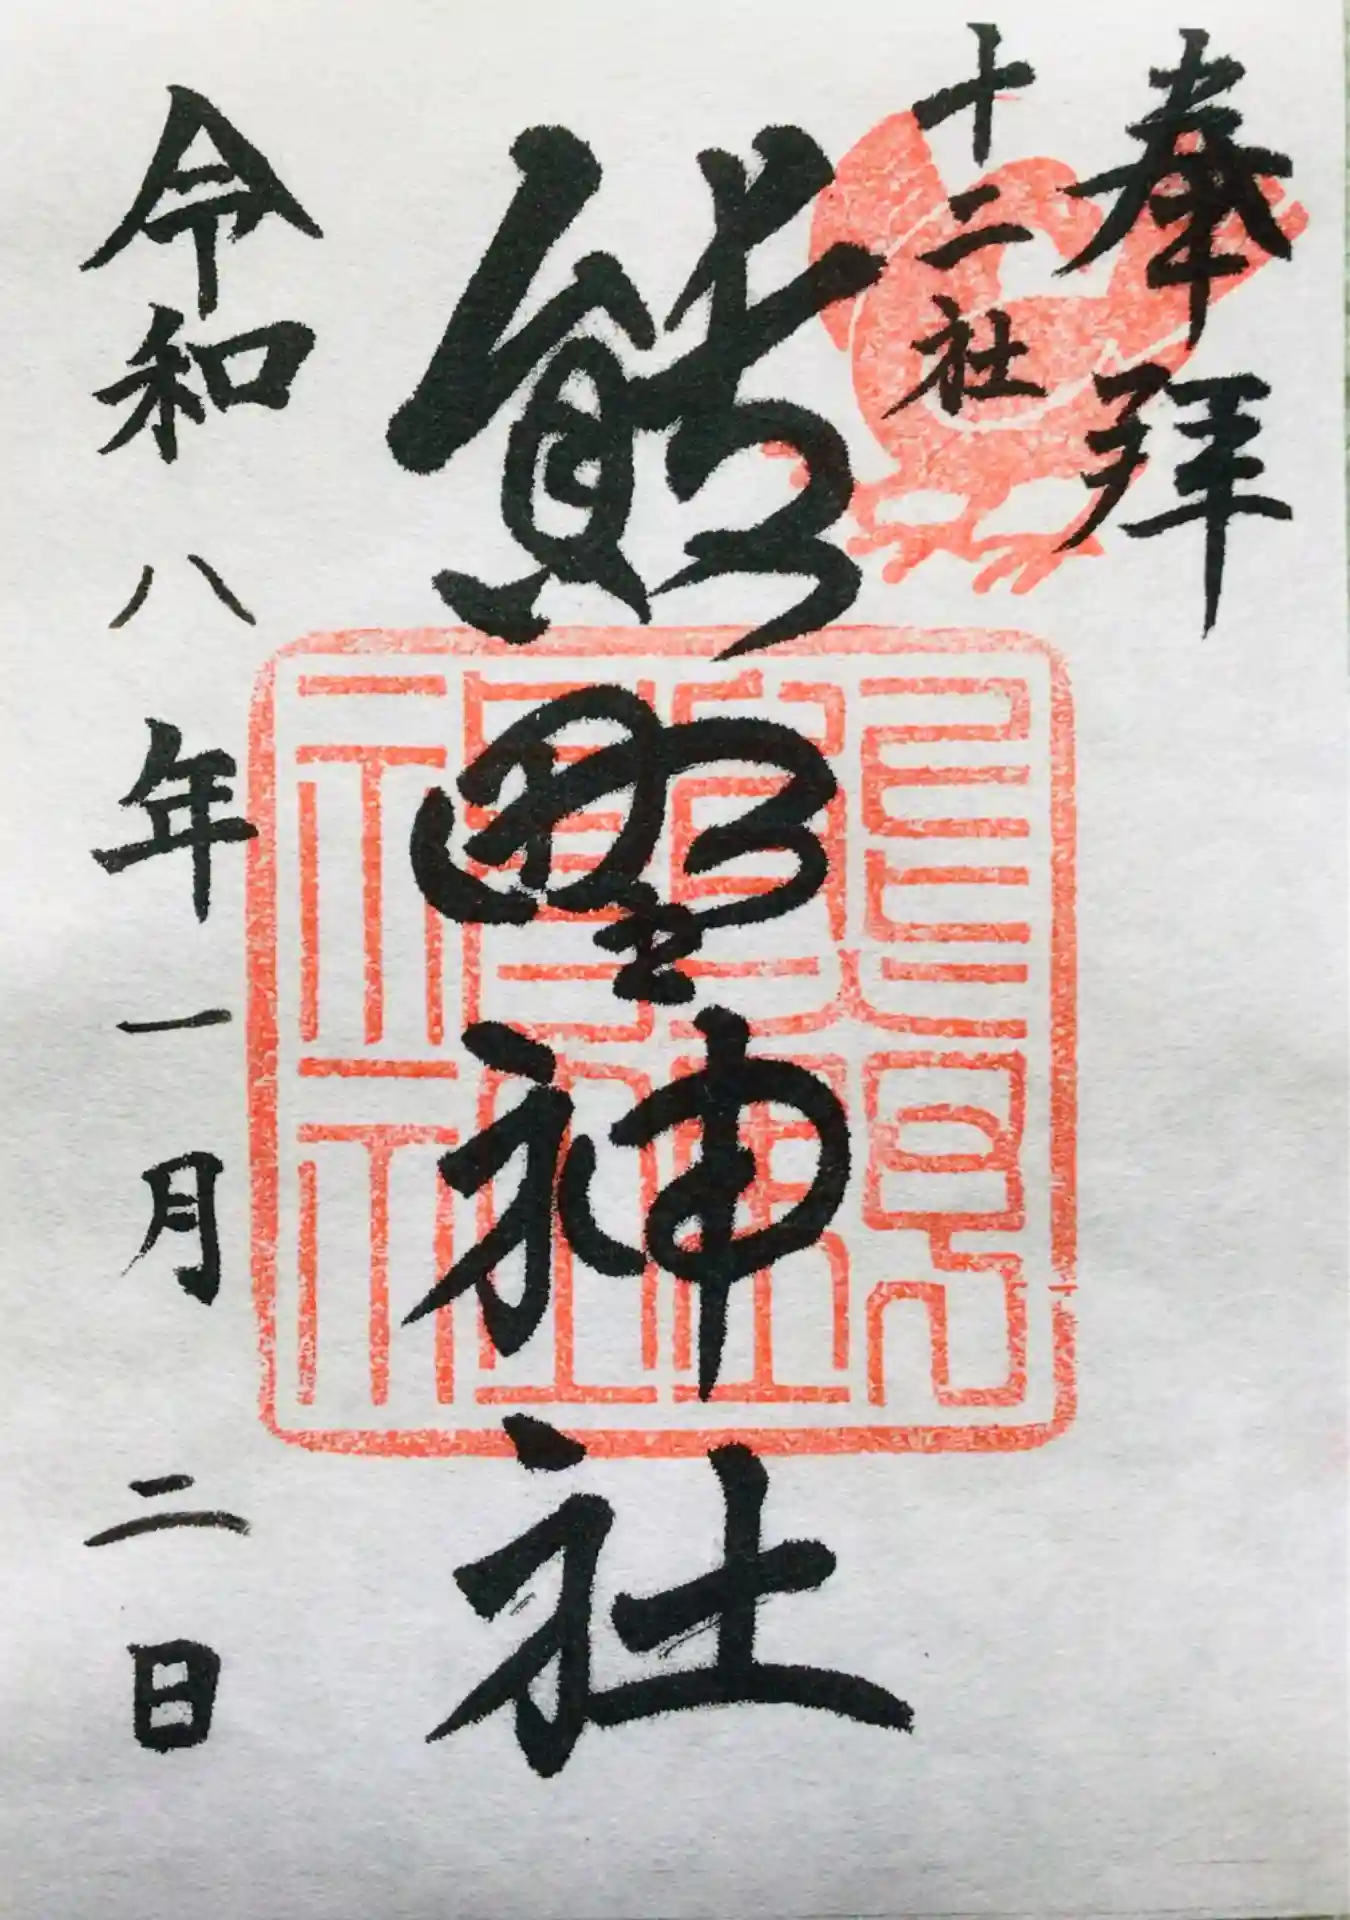 奉拝
十二社
熊野神社
令和八年一月二日